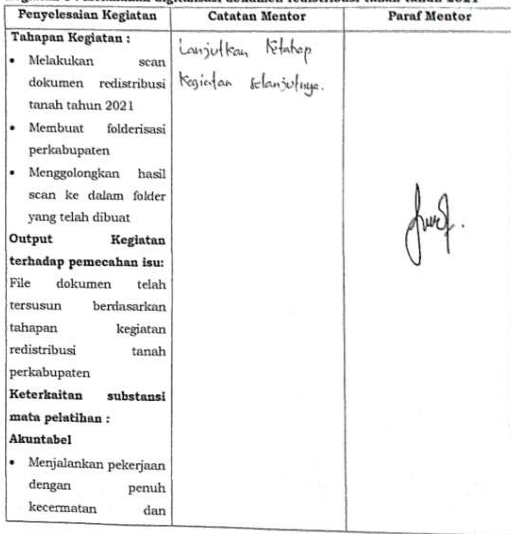 Penyelesaian Kegiatan
Catatan Mentor
Paraf Mentor
Tahapan Kegiatan :
• Melakukan scan
dokumen redistribusi
tanah tahun 2021
• Membuat folderisasi
perkabupaten
• Menggolongkan hasil
scan ke dalam folder
yang telah dibuat
Output Kegiatan
terhadap pemecahan isu:
File dokumen telah
tersusun berdasarkan
tahapan kegiatan
redistribusi tanah
perkabupaten
Keterkaitan substansi
mata pelatihan :
Akuntabel
• Menjalankan pekerjaan
dengan penuh
kecermatan dan
Lanjutkan Ketahap
Kegiatan selanjutnya.